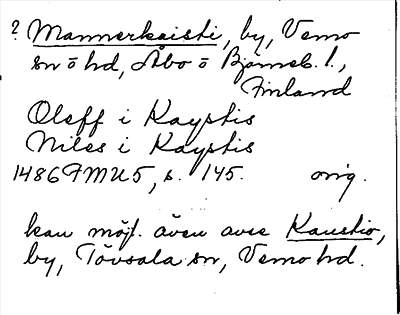 ? Mannerkaisti, by, Vemo
sn o hd, Åbo o Björneb. l.,
Finland
Oleff i Kaystis
Niles i Kaystis
1486 FMU 5, s. 145. orig.
kan möjl. även avse Kaustio,
by, Tövsala sn, Vemo hd.